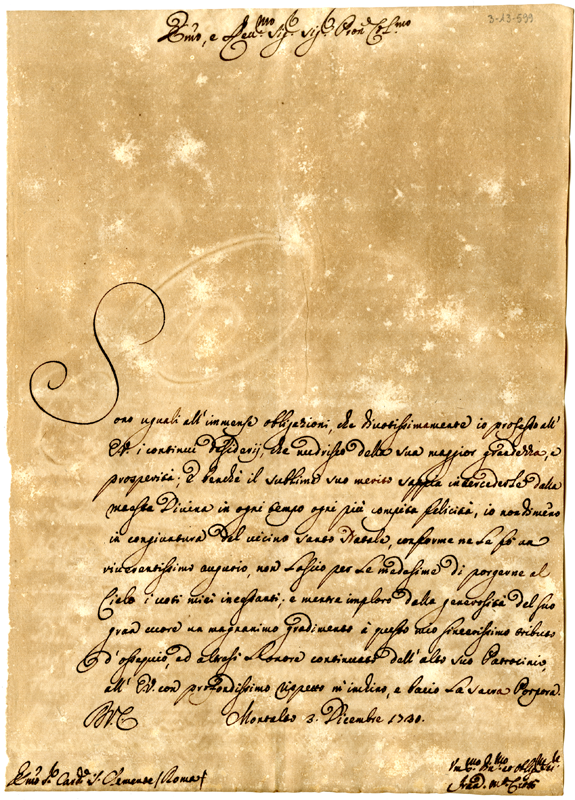 3-13-599
Emo, e Reu.mo Sig.r Sig.r Pron Col.mo
Sono uguali all' immense obligazioni, che diuotissimamente io professo all'
E.V. i continui desiderij, che nudrisco della sua maggior grandezza, e
prosperità; e benche il sublime suo merito sappia intercederle dalla
maestà Diuina in ogni tempo ogni più compita felicità, io nondimeno
in congiuntura del uicino Santo Natale, conforme ne Le fò un
riuerentissimo augurio, non Lascio per Le medesime di porgerne al
Cielo i uoti miei incessanti; e mentre imploro dalla generosità del suo
gran cuore un magnanimo gradimento à questo mio sincerissimo tributo
d'ossequio, ed altresi L'onore continuato dell' alto suo Patrocinio,
all' E.V. con profondissimo rispetto m' inchino, e bacio La Sacra Porpora.
Montalto 3. Dicembre 1730.
Emo S.r Card. S. Clemente / Roma /